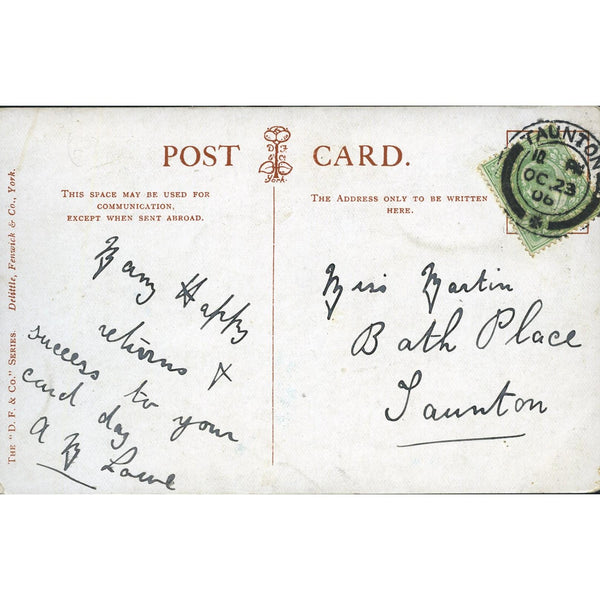 POST CARD.
D F & Co
York.
THIS SPACE MAY BE USED FOR
COMMUNICATION,
EXCEPT WHEN SENT ABROAD.
THE ADDRESS ONLY TO BE WRITTEN
HERE.
THE "D. F. & CO." SERIES. Delittle, Fenwick & Co., York.
Many Happy
returns &
success to your
card day
A M Lowe
Miss Martin
Bath Place
Taunton
TAUNTON
OC 23
06